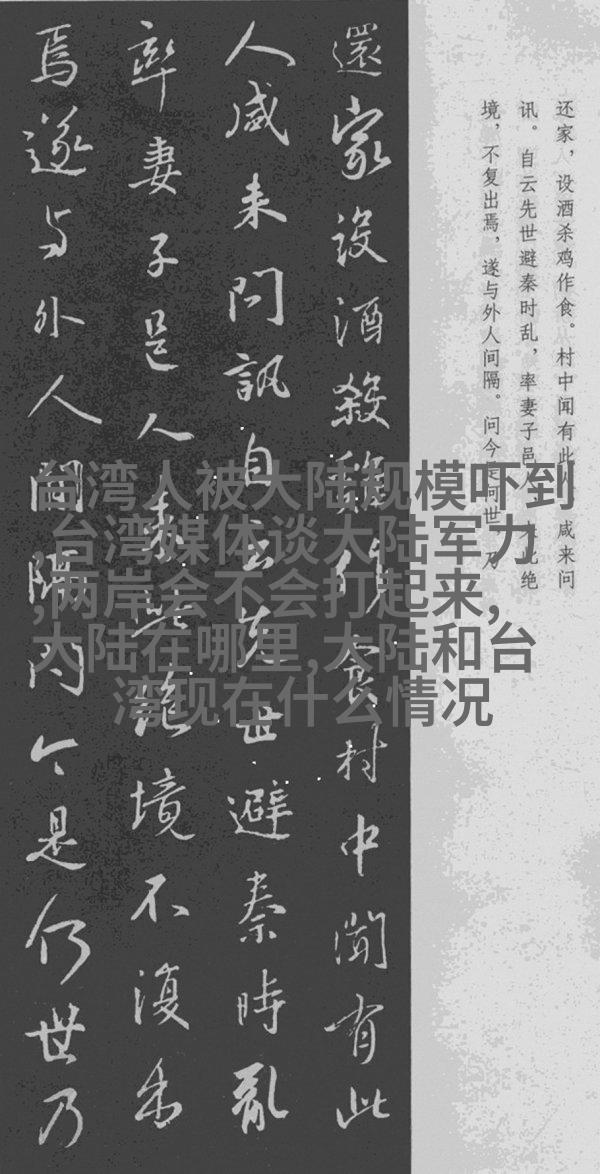 还家，设酒杀鸡作食。村中闻有此人 咸来问
讯。自云先世避秦时乱，率妻子邑人来此绝
境，不复出焉，遂与外人间隔。问今是何世 乃
還家設酒殺雞作食村中聞有此
人咸来問訊自云先世避秦時亂
率妻子邑人来此絶境不復出
焉遂与外人間隔問今是何世乃
台湾人被大陆规模吓到
,台湾媒体谈大陆军力
,两岸会不会打起来,
大陆在哪里,大陆和台
湾现在什么情况